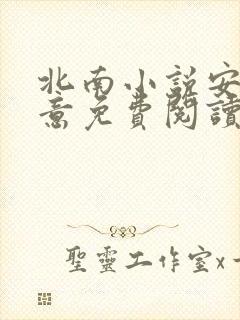 北南小説安
意免費閱讀
聖靈工作室x